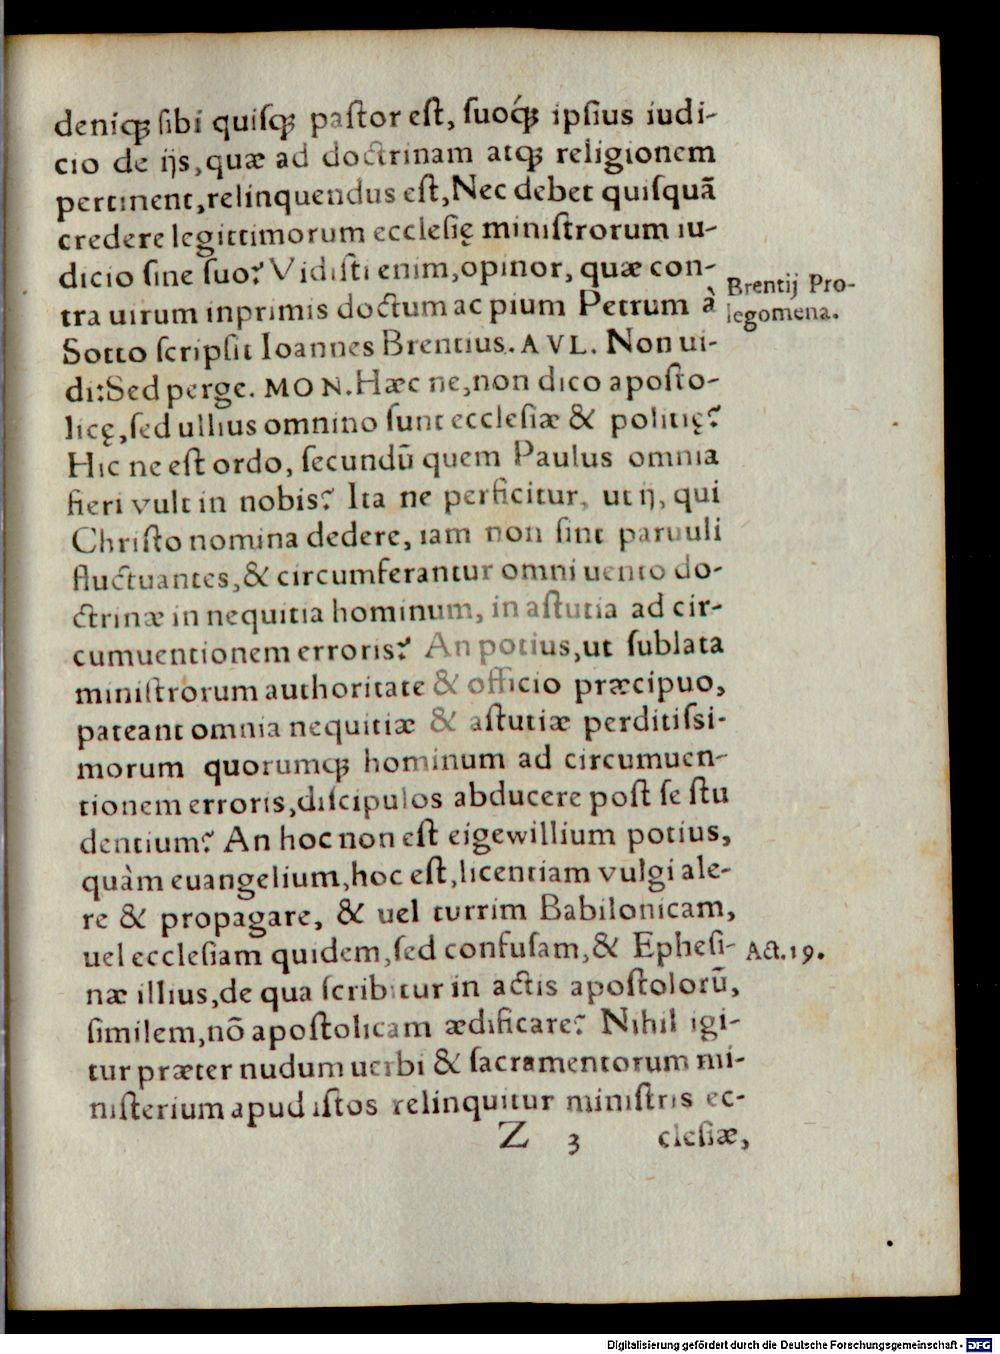 deniqꝫ ſibi quiſqꝫ paſtor eſt, ſuoq́ꝫ ipſius iudi-
cio de ijs, quæ ad doctrinam atqꝫ religionem
pertinent, relinquendus eſt, Nec debet quiſquã
credere legittimorum eccleſię miniſtrorum iu-
dicio ſine ſuo? Vidiſti enim, opinor, quæ con-
tra uirum inprimis doctum ac pium Petrum à
Brentij Pro-
legomena.
Sotto ſcripſit Ioannes Brentius. AVL. Non ui-
di: Sed perge. MON. Hæc ne, non dico apoſto-
licę, ſed ullius omnino ſunt eccleſiæ & politię?
Hic ne eſt ordo, ſecundũ quem Paulus omnia
fieri vult in nobis? Ita ne perficitur, ut ij, qui
Chriſto nomina dedere, iam non ſint paruuli
fluctuantes, & circumferantur omni uento do-
ctrinæ in nequitia hominum, in aſtutia ad cir-
cumuentionem erroris? An potius, ut ſublata
miniſtrorum authoritate & officio præcipuo,
pateant omnia nequitiæ & aſtutiæ perditiſsi-
morum quorumqꝫ hominum ad circumuen-
tionem erroris, diſcipulos abducere poſt ſe ſtu
dentium? An hoc non eſt eigewillium potius,
quàm euangelium, hoc eſt, licentiam vulgi ale-
re & propagare, & uel turrim Babilonicam,
uel eccleſiam quidem, ſed confuſam, & Epheſi-
Act. 19.
næ illius, de qua ſcribitur in actis apoſtolorũ,
ſimilem, nõ apoſtolicam ædificare? Nihil igi-
tur præter nudum uerbi & ſacramentorum mi-
niſterium apud iſtos relinquitur miniſtris ec-
Z 3 cleſiæ,
Digitalisierung gefördert durch die Deutsche Forschungsgemeinschaft - DFG